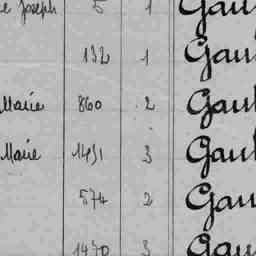 Joseph 5 1 Gau
132 1 Gau
Marie 860 2 Gau
Marie 1491 3 Gau
574 2 Gau
1470 3 Gau